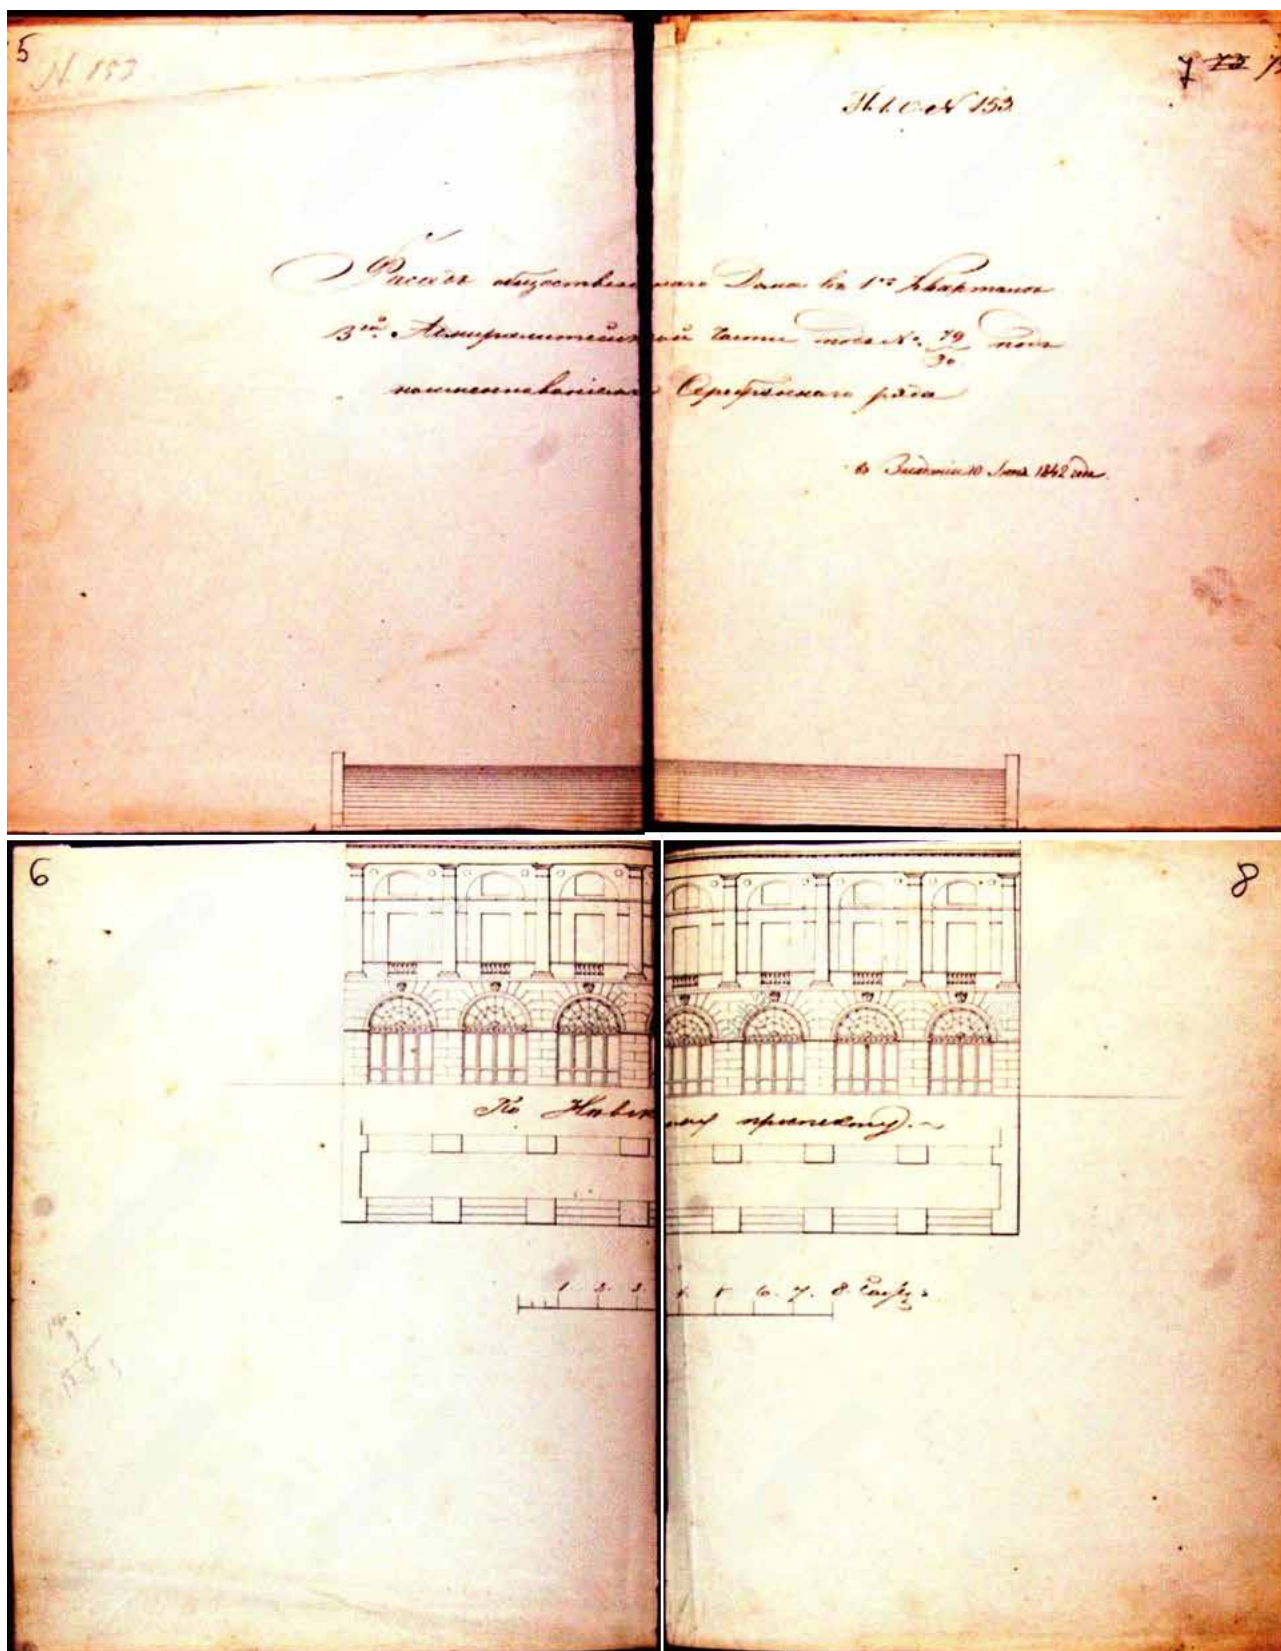 5
N. 153
7 73
N 153
Фасадъ общественнаго Дома въ 1мъ Кварталѣ
3ей Адмиралтейской Части подъ №. 79/30 подъ
наименованіемъ Серебрянаго ряда
1842 года.
6
8
По Невскому проспекту.
1. 2. 3. 4. 5. 6. 7. 8. Саж: